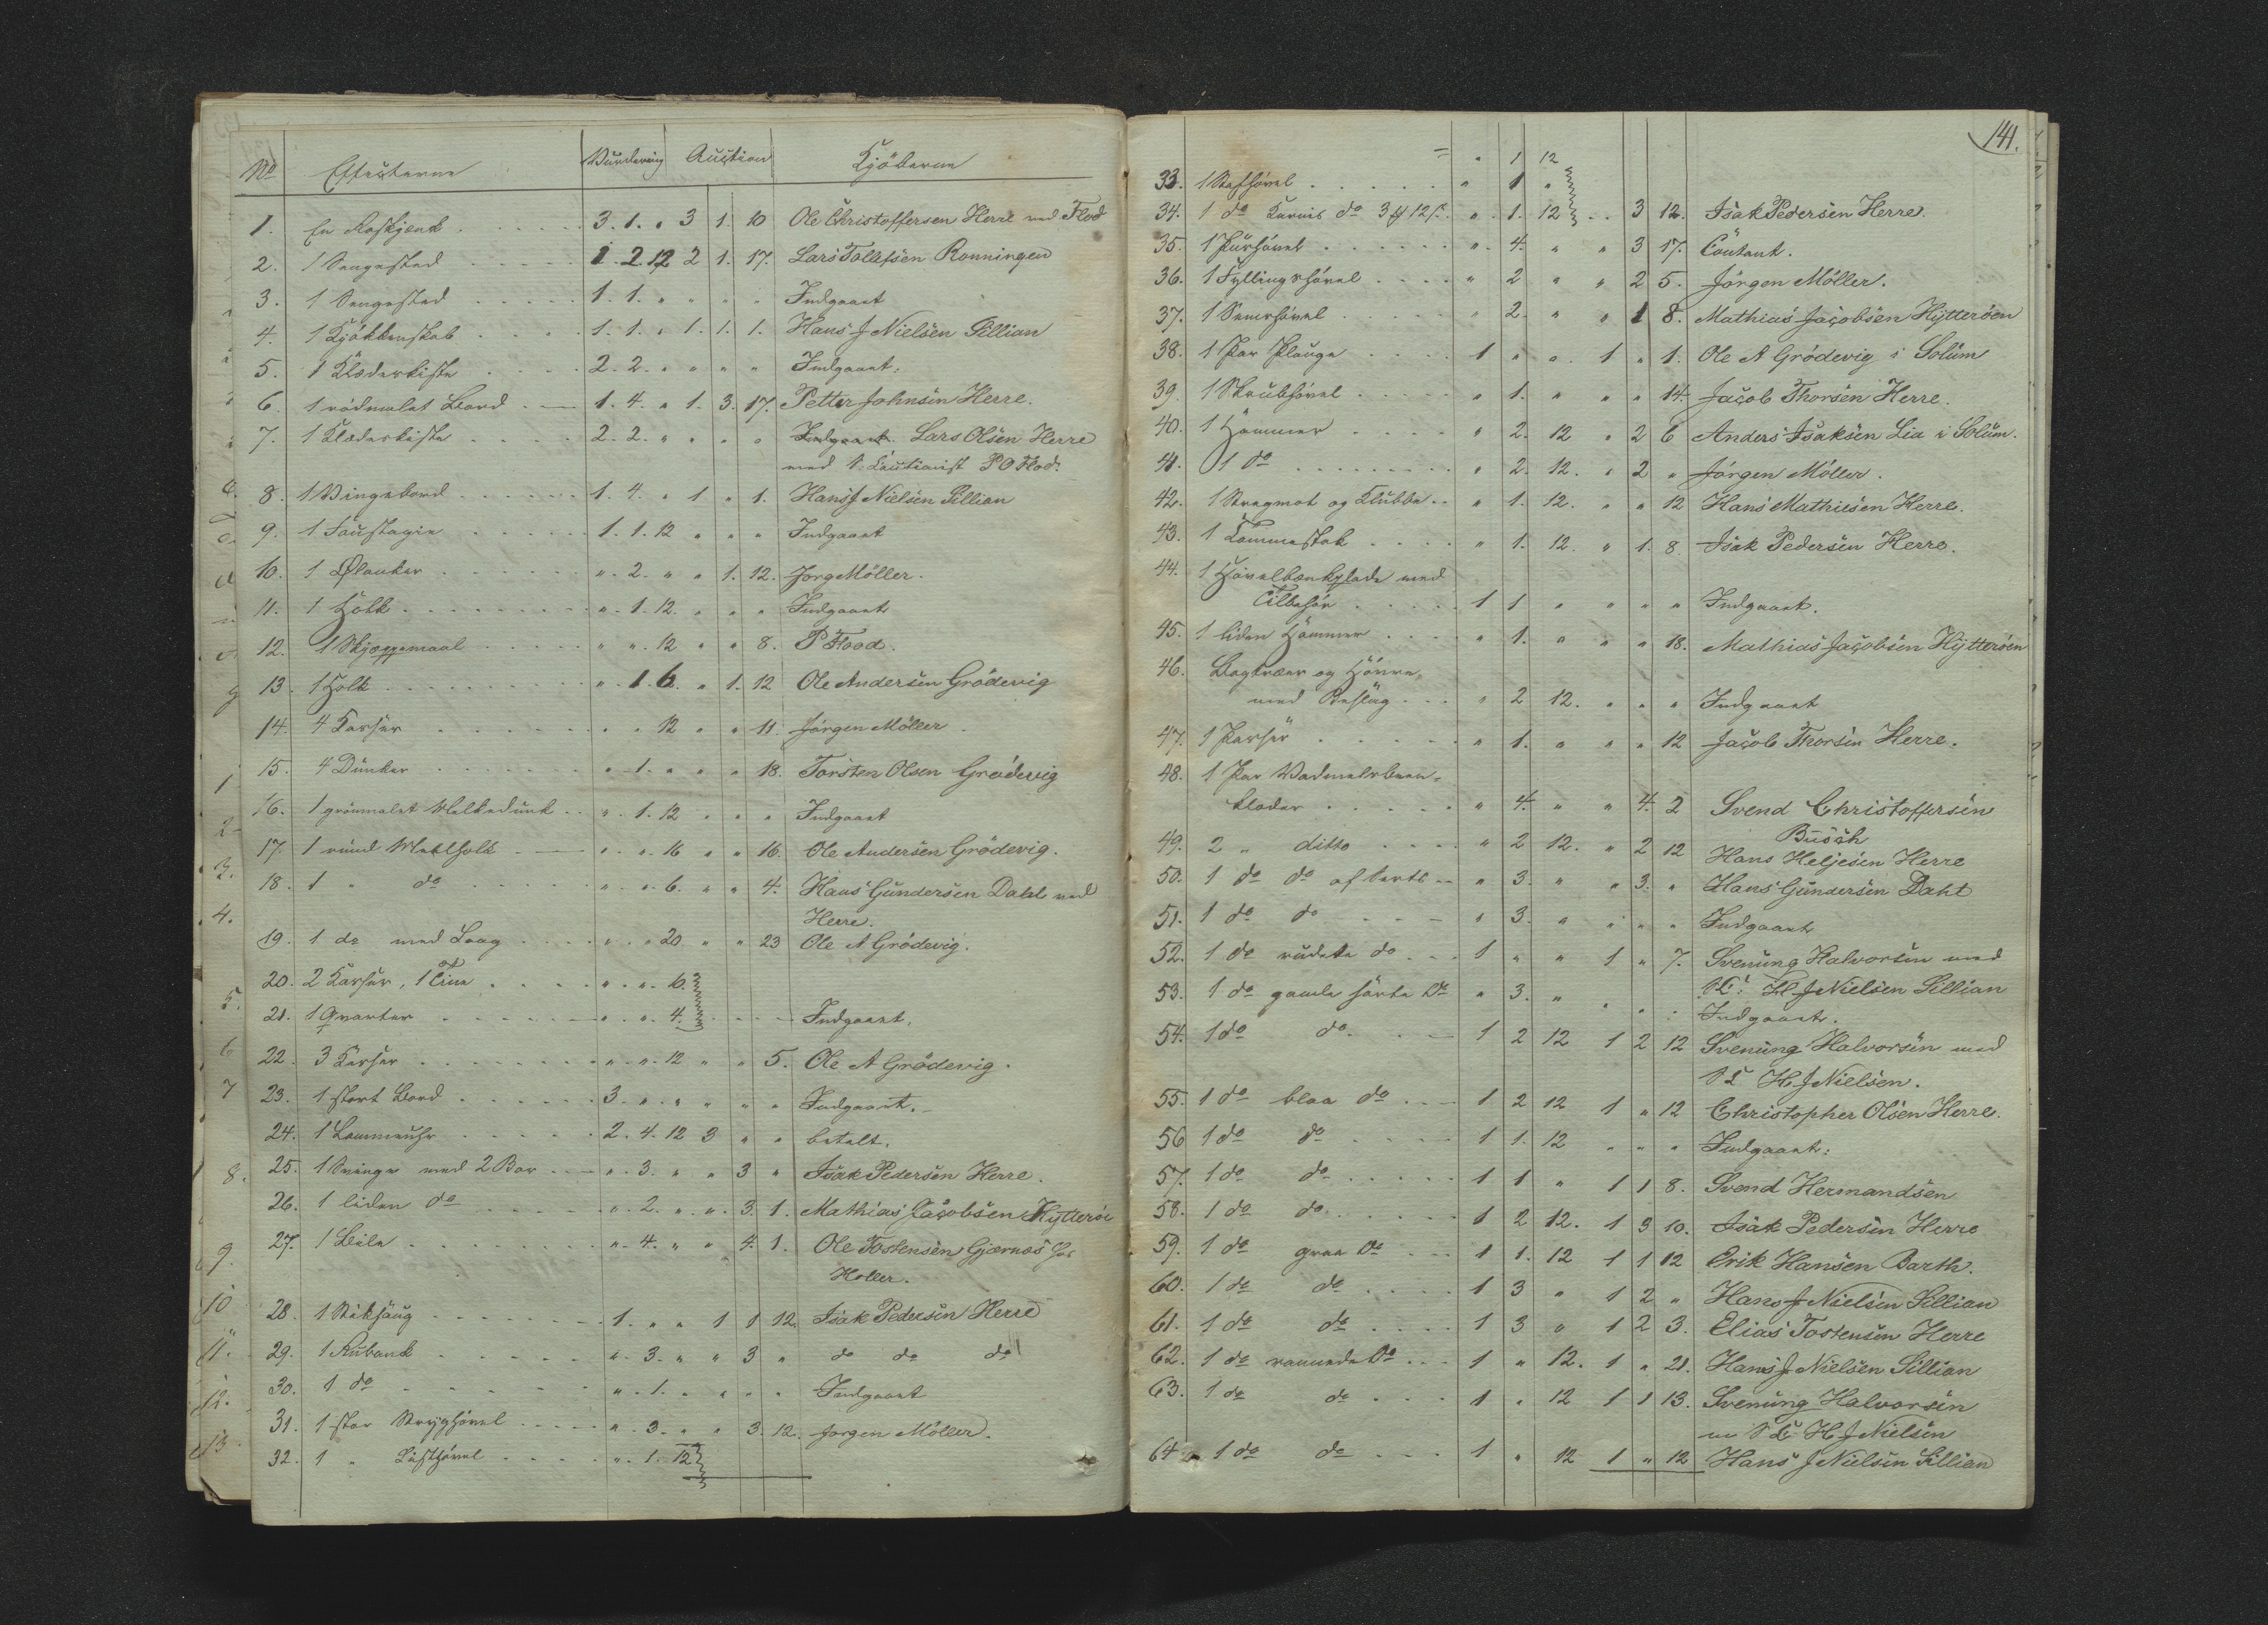 No Effecterne Vurdering Auction Kjöberne
1. En Roskjænt 3. 1. " 3 1. 10 Ole Christoffersen Herre ved Flod
2. 1 Sengested 1. 2. 12 2 1. 17. Lars Tollefsen Ronningen
3. 1 Sengested 1. 1. " " " " Indgaaet
4. 1 Kjökkenskab 1. 1. " 1. 1. 1. Hans J Nielsen Sillian
5. 1 Klæderkiste 2. 2. " " " " Indgaaet.
6. 1 rödmalet Bord 1. 4. " 1. 3. 17. Petter Johnsen Herre.
7. 1 Klæderkiste 2. 2. " " " " Indgaaet. Lars Olsen Herre
med S. Cautionist P O Flod.
8. 1 Vingebord 1. 4. " 1 " 1. Hans J Nielsen Sillian
9. 1 Foustagie 1. 1. 12 " " " Indgaaet
10. 1 Ølanker " 2. " " 1. 12. Jorg Möller.
11. 1 Holk " 1. 12. " " " Indgaaet
12. 1 Skjæppemaal " " 12 " " 8. P Flood.
13. 1 Holk " 1. 6. " 1. 12 Ole Andersen Grödevig
14. 4 Karser " " 12 " " 11. Jörgen Möller.
15. 4 Dunker " 1. " " " 18. Torsten Olsen Grödevig
16. 1 grönmalet Melkedunk " 1. 12 " " " Indgaaet
17. 1 rund Melholk " " 16 " " 16. Ole Andersen Grödevig.
18. 1 " do " " 6. " " 4. Hans Gundersen Dahl ved
Herre.
19. 1 do med Laag " " 20 " " 23 Ole A Grödevig.
20. 2 Karser, 1 Tine " " 6.
21. 1 Qvarter " " 4. Indgaaet.
22. 3 Karser " " 12 " " 5. Ole A Grödevig.
23. 1 stort Bord 3. " " " " " Indgaaet.
24. 1 Lommeuhr 2. 4. 12 3 " " betalt.
25. 1 Svinge med 2 Bor " 3. " " 3 " Isak Pedersen Herre.
26. 1 liden do " 2. " " 3. 1. Mathias Jacobsen Hytterö
27. 1 Bile " 4. " " 4. 1. Ole Tostensen Gjernæs
Holler.
28. 1 Stiksaug 1. " " 1 1 12. Isak Pedersen Herre
29. 1 Rubank " 3. " " 3 " do do do
30. 1 do " 1. " " " " Indgaaet
31. 1 stor Stryghövel " 3. " " 3. 12. Jorgen Möller.
32. 1 " Listhövel " 1. 12
141.
= " 1 12
33. 1 Stafhövel " 1 "
34. 1 do Karnis do 3 12 " 1. 12 " 3 12. Isak Pedersen Herre.
35. 1 Purhövel " 4. " " 3 17. Contant.
36. 1 Fyllingshövel " 2 " " 2 5. Jörgen Möller.
37. 1 Semshövel " 2. " " 1 8. Mathias Jacobsen Hytteröen
38. 1 Par Plouge 1 " " 1 " 1. Ole A Grödevig i Solum
39. 1 Skrubhövel " 1. " " " 14. Jacob Thorsen Herre.
40. 1 Hammer " 2. 12 " 2 6 Anders Isaksen Lia i Solum.
41. 1 do " 2. 12. " 2 " Jörgen Möller.
42. 1 Stregmot og Klubbe " 1. 12. " " 12 Hans Mathiesen Herre.
43. 1 Tommestok " 1. 12. " 1. 8. Isak Pedersen Herre.
44. 1 Hövelbænkplade med
Tilbehör 1 1 " " " " Indgaaet.
45. 1 liden Hammer " 1. " " " 18. Mathias Jacobsen Hytteröen
46. Bogtræer og Hövre,
med Beslag " 2 12. " " " Indgaaet
47. 1 Karser " 1. " " " 12 Jacob Thorsen Herre.
48. 1 Par Vadmelsbeen-
klæder " 4. " " 4. 2 Svend Christoffersen
Busch
49. 2 " ditto " 2 12. " 2 12 Hans Heljesen Herre
50. 1 do do " 3. " " 3. " Hans Gundersen Dahl
51. 1 do do " 3. " " " " Indgaaet
52. 1 do rudete do 1 " " 1 " 7. Svenung Halvorsen med
S C. H J Nielsen Sillian
53. 1 do gamle sorte do " 3. " " " " Indgaaet.
54. 1 do do 1 2 12 1 2 12 Svenung Halvorsen med
S C H J Nielsen.
55. 1 do blaa do 1 2 12 1 " 12 Christopher Olsen Herre.
56 1 do do 1 1. 12 " " " Indgaaet.
57. 1 do do 1 1 " 1 1 8. Svend Hermandsen
58. 1 do do 1 2 12. 1 3 10. Isak Pedersen Herre
59. 1 do graa do 1 1. 12 1 1 12 Erik Hansen Barth.
60. 1 do do 1 3 " 1 2 " Hans J Nielsen Sillian
61. 1 do do 1 3 " 1 2 3. Elias Tostensen Herre
62. 1 do rannede do 1 " 12. 1 " 21. Hans J Nielsen Sillian
63. 1 do do 1 " 12 1 1 13. Svenung Halvorsen
m S C H J Nielsen
64 1 do do 1 " 12 1 " 12 Hans J Nielsen Sillian